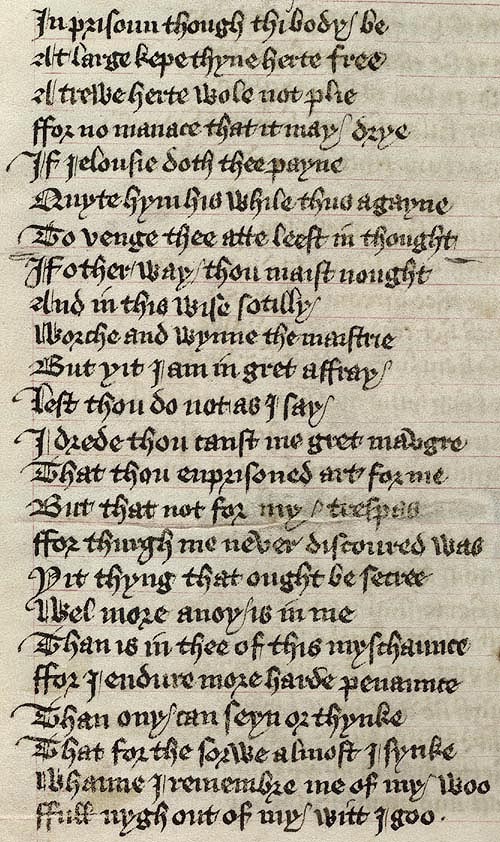 In prisoun though thi body be
At large kepe thyne herte free
A trewe herte wole not plie
ffor no manace that it may drye
If Ielousie doth thee payne
Quyte hym his while thus agayne
To venge thee atte leest in thought
If other way thou maist nought
And in this wise sotilly
Worche and wynne the maistrie
But yit I am in gret affray
Lest thou do not as I say
I drede thou canst me gret maugre
That thou enprisoned art for me
But that not for my trespas
ffor thurgh me never discoured was
Yit thyng that ought be secree
Wel more anoy is in me
Than is in thee of this myschaunce
ffor I endure more harde penaunce
Than ony can seyn or thynke
That for the sorwe almost I synke
Whanne I remembre me of my woo
ffull nygh out of my witt I goo.